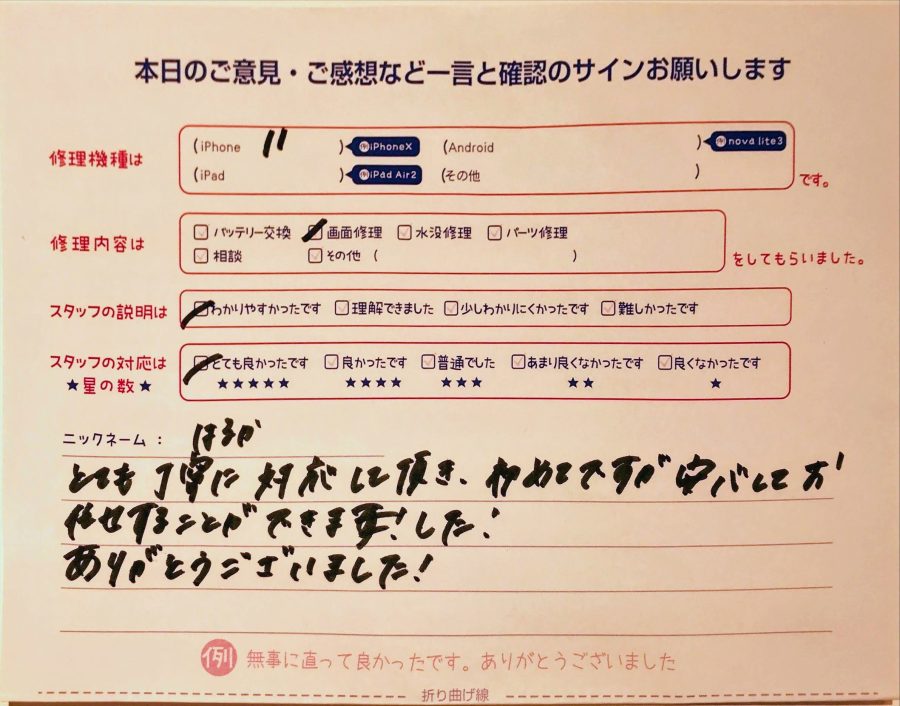 本日のご意見・ご感想など一言と確認のサインお願いします
修理機種は
(iPhone 11 ) 例 iPhoneX (Android ) 例 nova lite3
(iPad ) 例 iPad Air2 (その他 ) です。
修理内容は
バッテリー交換 画面修理 水没修理 パーツ修理
相談 その他 ( ) をしてもらいました。
スタッフの説明は わかりやすかったです 理解できました 少しわかりにくかったです 難しかったです
スタッフの対応は とても良かったです 良かったです 普通でした あまり良くなかったです 良くなかったです
★星の数★ ★★★★★ ★★★★ ★★★ ★★ ★
ニックネーム: はるか
とても丁寧に対応して頂き、初めてですが安心してお
任せすることができます!した!
ありがとうございました!
例 無事に直って良かったです。ありがとうございました
折り曲げ線